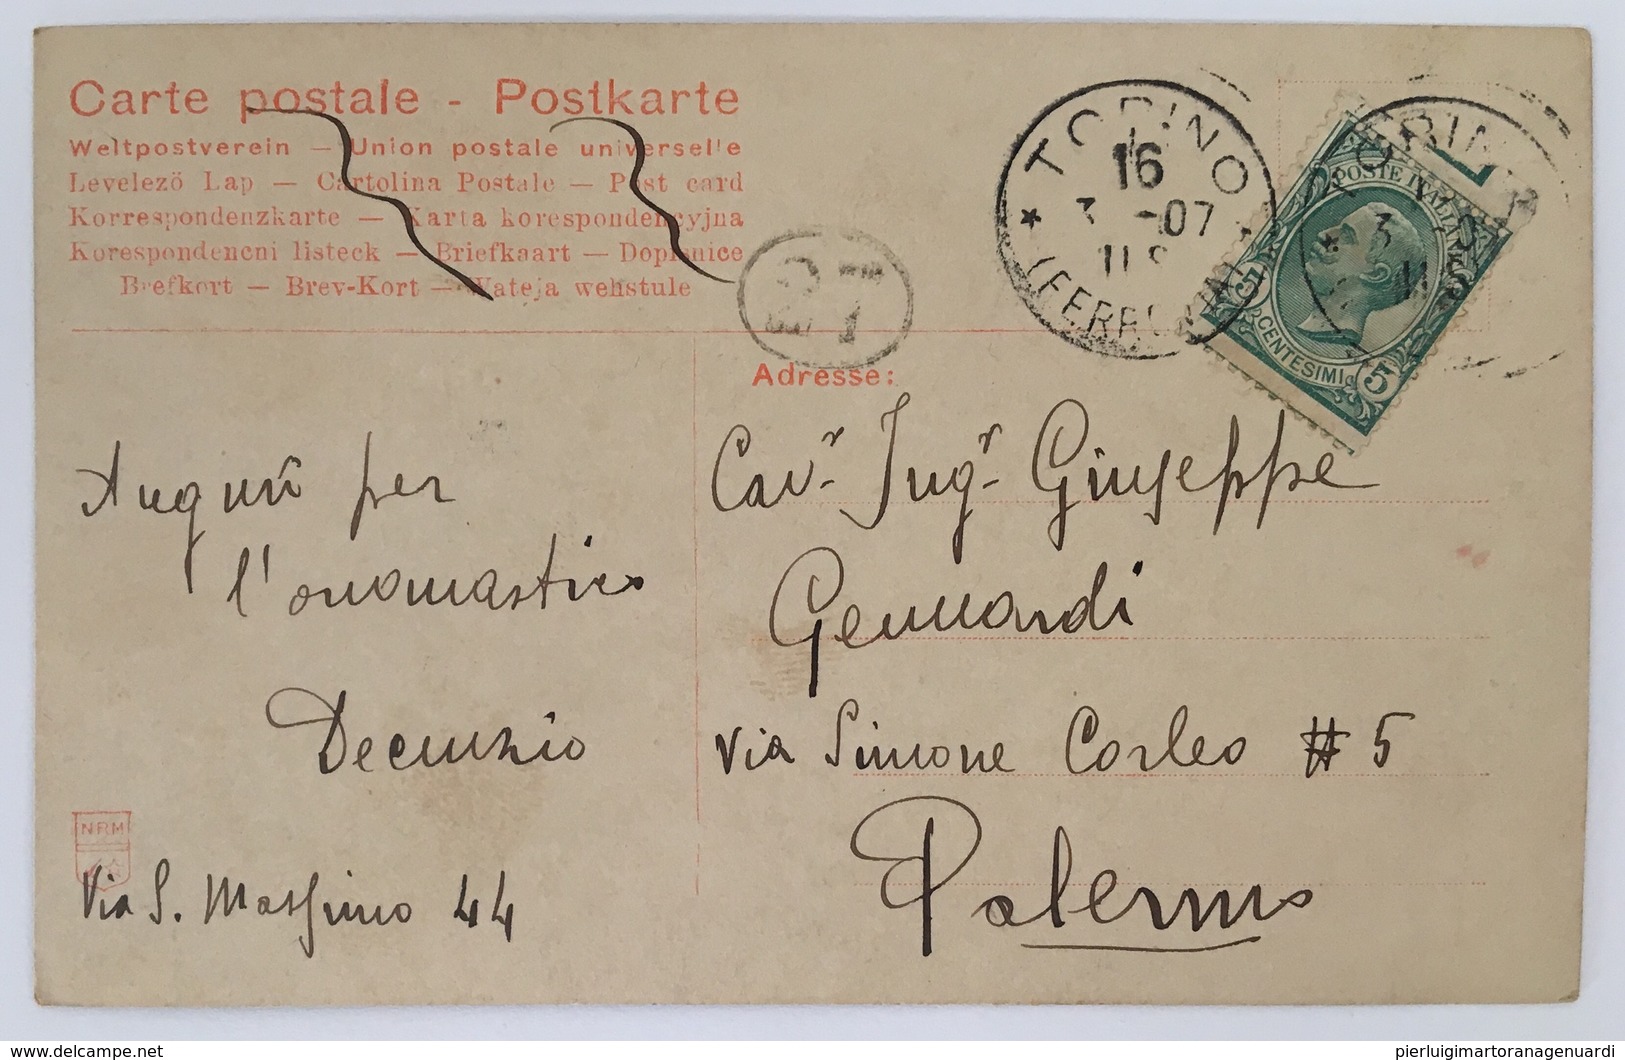 Carte postale - Postkarte
Weltpostverein — Union postale universelle
Levelező Lap — Cartolina Postale — Post card
Korrespondenzkarte — Karta korespondencyjna
Korespondencni listeck — Briefkaart — Dopisnice
Brefkort — Brev-Kort — Wateja wehstule
TORINO
16
3 -07
(FERROVIA)
POSTE ITALIANE
CENTESIMI
5
5
TORINO
3
Adresse:
Auguri per
l'onomastico
Decunzio
NRM
Via S. Massimo 44
Cavr. Ingr. Giuseppe
Gennuardi
Via Simone Corleo # 5
Palermo
delcampe.net
pierluigimartoranagenuardi